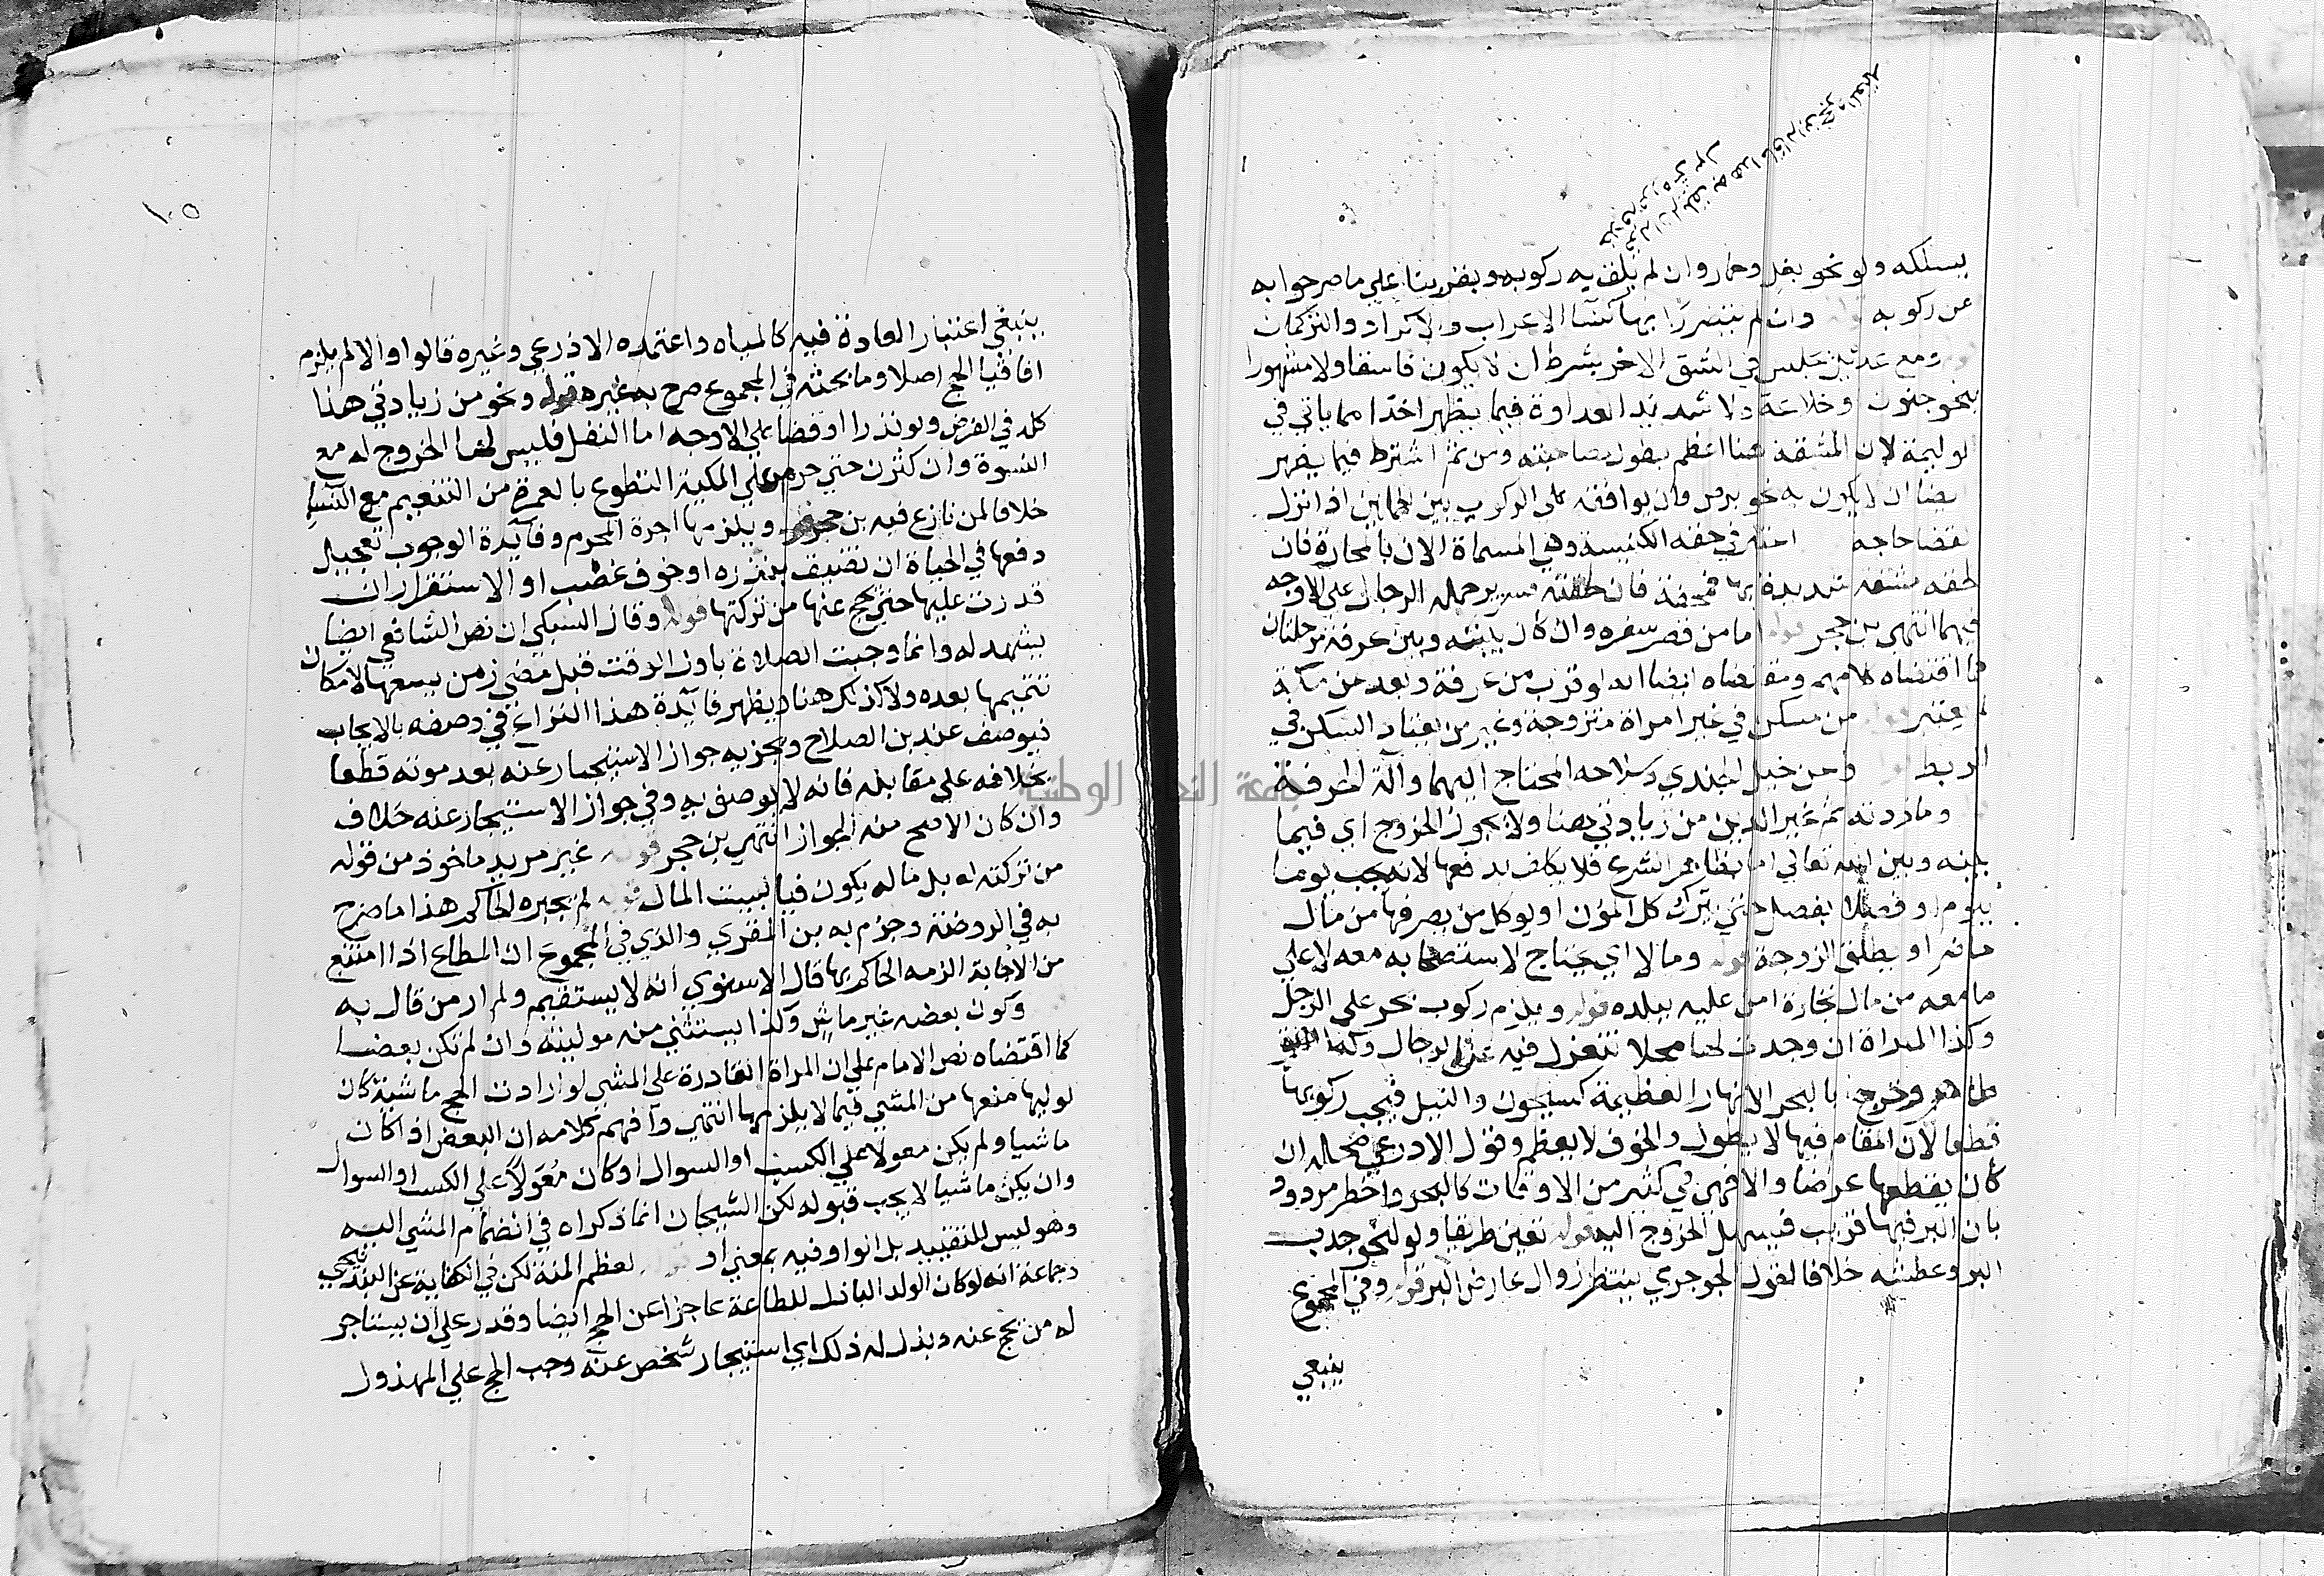 يسلكه ولو نحو بغل وحمار وان لم يلق به ركوبه وبفرينا علي ما صرحوا به
عن ركوبه وان لم يتضرر بها كنسا الاعراب والاكراد والتركمان
ومع عديل يجلس في الشق الاخر بشرط ان لا يكون فاسقا ولا مشهورا
بنحو جنون وخلاعة ولا شديد العداوة فيما يظهر اخذا مما ياتي في
لوليمة لان المشقة هنا اعظم بطول مصاحبته ومن ثم اشترط فيما يظهر
ايضا ان لا يكون به نحو برص وان يوافقه على الركوب بين المحملين اذا نزل
لقضا حاجه احتر في حقه الكنيسة وهي المسماة الان بالمحارة فان
لحقه مشقه شديدة بها فمحفة فان لحقته فسرير يحمله الرجال على الاوجه
فيهما انتهى بن حجر قوله اما من قصر سفره وان كان بينه وبين عرفة مرحلتان
كما اقتضاه كلامهم ومقتضاه ايضا انه لو قرب من عرفة وبعد من مكة
لم يعتبر قوله من مسكن في غير امراة متزوجة وغير من يعتاد السكن في
الربط قوله ومن خيل الجندي وسلاحه المحتاج اليهما وآلة المحرفة
وما زدته ثم غير الدين من زيادتي هنا ولا يجوز الخروج اي فيما
بينه وبين الله تعالي اما بظاهر الشرع فلا يكلف بدفعها لانه يجب يوما
بيوم او فصلا بفصل حتي يترك كل المؤن او يوكل من يصرفها من مال
حاضر او يطلق الزوجة قوله ومالا اي يحتاج لاستصحابه معه لا على
ما معه من مال تجارة امن عليه ببلده قوله ويلزم ركوب بحر على الرجل
وكذا المراة ان وجدت لها محلا تنعزل فيه عن الرجال وكذا
ظاهر وخرج بالبحر الانهار العظيمة كسيحون والنيل فيجب ركوبها
قطعا لان المقام فيها لا يطول والخوف لا يعظم وقول الاذرعي محله ان
كان يقطعها عرضا والا فهي في كثير من الاوقات كالبحر واخطر مردود
بان البر فيها قريب فيسهل الخروج اليه قوله تعين طريقا ولو لنحو جدب
البر وعطشه خلافا لقول الجوجري ينتظر زوال عارض البر قوله وفي المجموع
ينبغي
١٠٥
ينبغي اعتبار العادة فيه كالمياه واعتمده الاذرعي وغيره قالوا والا لم يلزم
افاقيا الحج اصلا وما بحثه في المجموع صرح به غيره قوله ونحو من زيادتي هنا
كله في الفرض ولو نذرا او قضا علي الاوجه اما النفل فليس لها الخروج له مع
النسوة وان كثرن حتي حرم علي المكية التطوع بالعمرة من التنعيم مع النسا
خلافا لمن نازع فيه بن حجر قوله ويلزمها اجرة المحرم وفائدة الوجوب تعجيل
دفعها في الحياة ان تضيف بنذره او خوف غضب او الاستقرار ان
قدرت عليها حتي يحج عنها من تركتها قوله وقال السبكي ان نص الشافعي ايضا
يشهد له وانما وجبت الصلاة باول الوقت قبل مضي زمن يسعها لامكان
تتميمها بعده ولا كذلك هنا ويظهر فائدة هذا النزاع في وصفه بالايجاب
فيوصف عند بن الصلاح وبجزيه جواز الاستيجار عنه بعد موته قطعا
بخلافه علي مقابله فانه لا يوصف به وفي جواز الاستيجار عنه خلاف
وان كان الاصح منه الجواز انتهى بن حجر قوله غير مريد ماخوذ من قوله
من تركته اه بل ماله يكون فيا لبيت المال قوله لم يجبره الحاكم هذا ما صرح
به في الروضة وجزم به بن المقري والذي في المجموع ان المطاع اذا امتنع
من الاجابة الزمه الحاكم بها قال الاسنوي انه لا يستقيم ولم ار من قال به
وكون بعضه غير ماش وكذا يستثني منه موليته وان لم تكن بعضا
كما اقتضاه نص الامام علي ان المراة القادرة علي المشي لو ارادت الحج ماشية كان
لوليها منعها من المشي فيما لا يلزمها انتهي وافهم كلامه ان البعض اذا كان
ماشيا ولم يكن معولا علي الكسب او السوال او كان معولا علي الكسب او السوال
وان يكن ماشيا لا يجب قبوله لكن الشيخان انما ذكراه في انضمام المشي اليه
وهو ليس للتقييد بل الواو فيه بمعني او قوله لعظم المنة لكن في الكفاية عن البندنيجي
وجماعة انه لو كان الولد الباذل للطاعة عاجزا عن الحج ايضا وقدر علي ان يستاجر
له من يحج عنه وبذل له ذلك اي استيجار شخص عنه وجب الحج علي المبذول
جامعة النجاح الوطنية